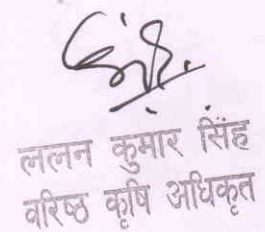 ललन कुमार सिंह
वरिष्ठ कृषि अधिकृत